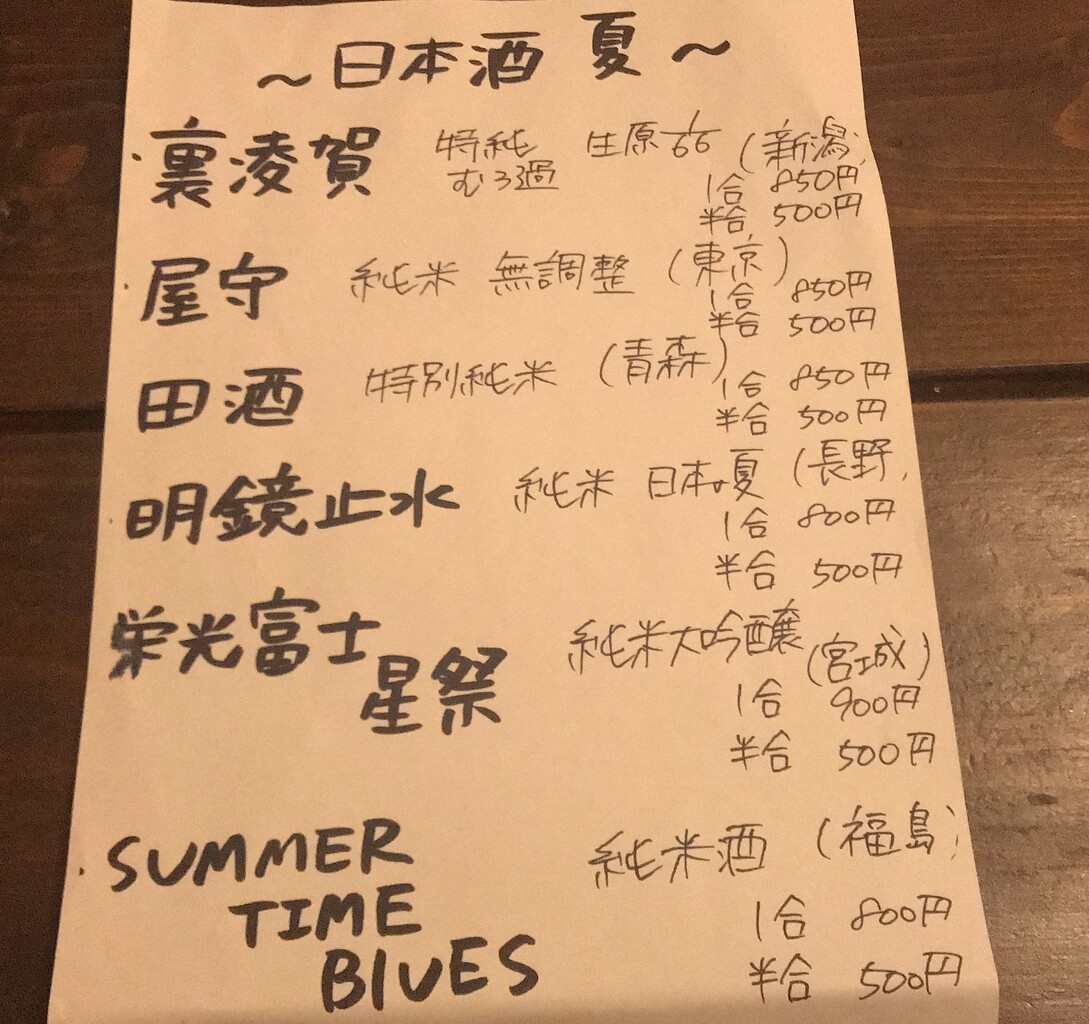 ～日本酒 夏～
・裏凌賀 特純 生原66 (新潟)
むろ過
1合 850円
半合 500円
・屋守 純米 無調整 (東京)
1合 850円
半合 500円
田酒 特別純米 (青森)
1合 850円
半合 500円
明鏡止水 純米 日本の夏 (長野)
1合 800円
半合 500円
栄光富士 純米大吟醸 (宮城)
星祭
1合 900円
半合 500円
・SUMMER 純米酒 (福島)
TIME
BlUES
1合 800円
半合 500円